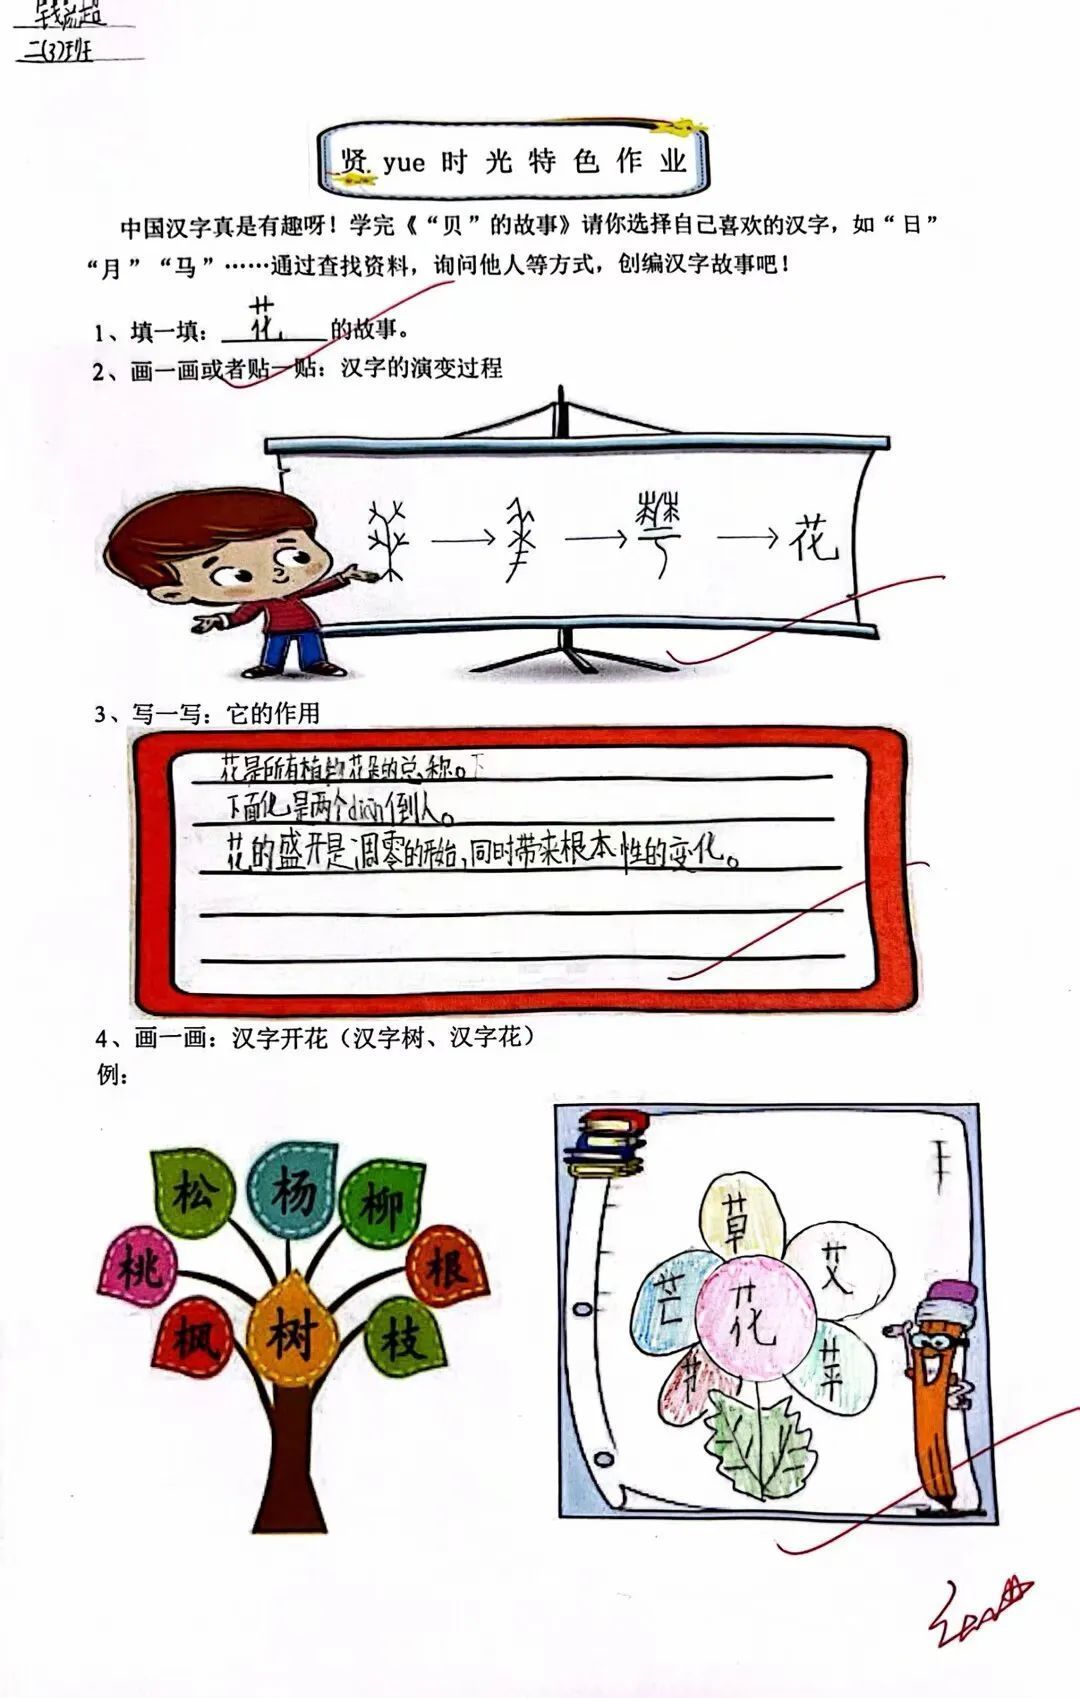 二(3)班
贤.yue时光特色作业
中国汉字真是有趣呀！学完《“贝”的故事》请你选择自己喜欢的汉字，如“日”
“月”“马”……通过查找资料，询问他人等方式，创编汉字故事吧！
1、填一填：花的故事。
2、画一画或者贴一贴：汉字的演变过程
花
3、写一写：它的作用
花是所有植物花朵的总称。下
下面化是两个diān倒人。
花的盛开是凋零的开始,同时带来根本性的变化。
4、画一画：汉字开花（汉字树、汉字花）
例：
松 杨 柳
桃 根
枫 树 枝
草
芒 花 艾
苹